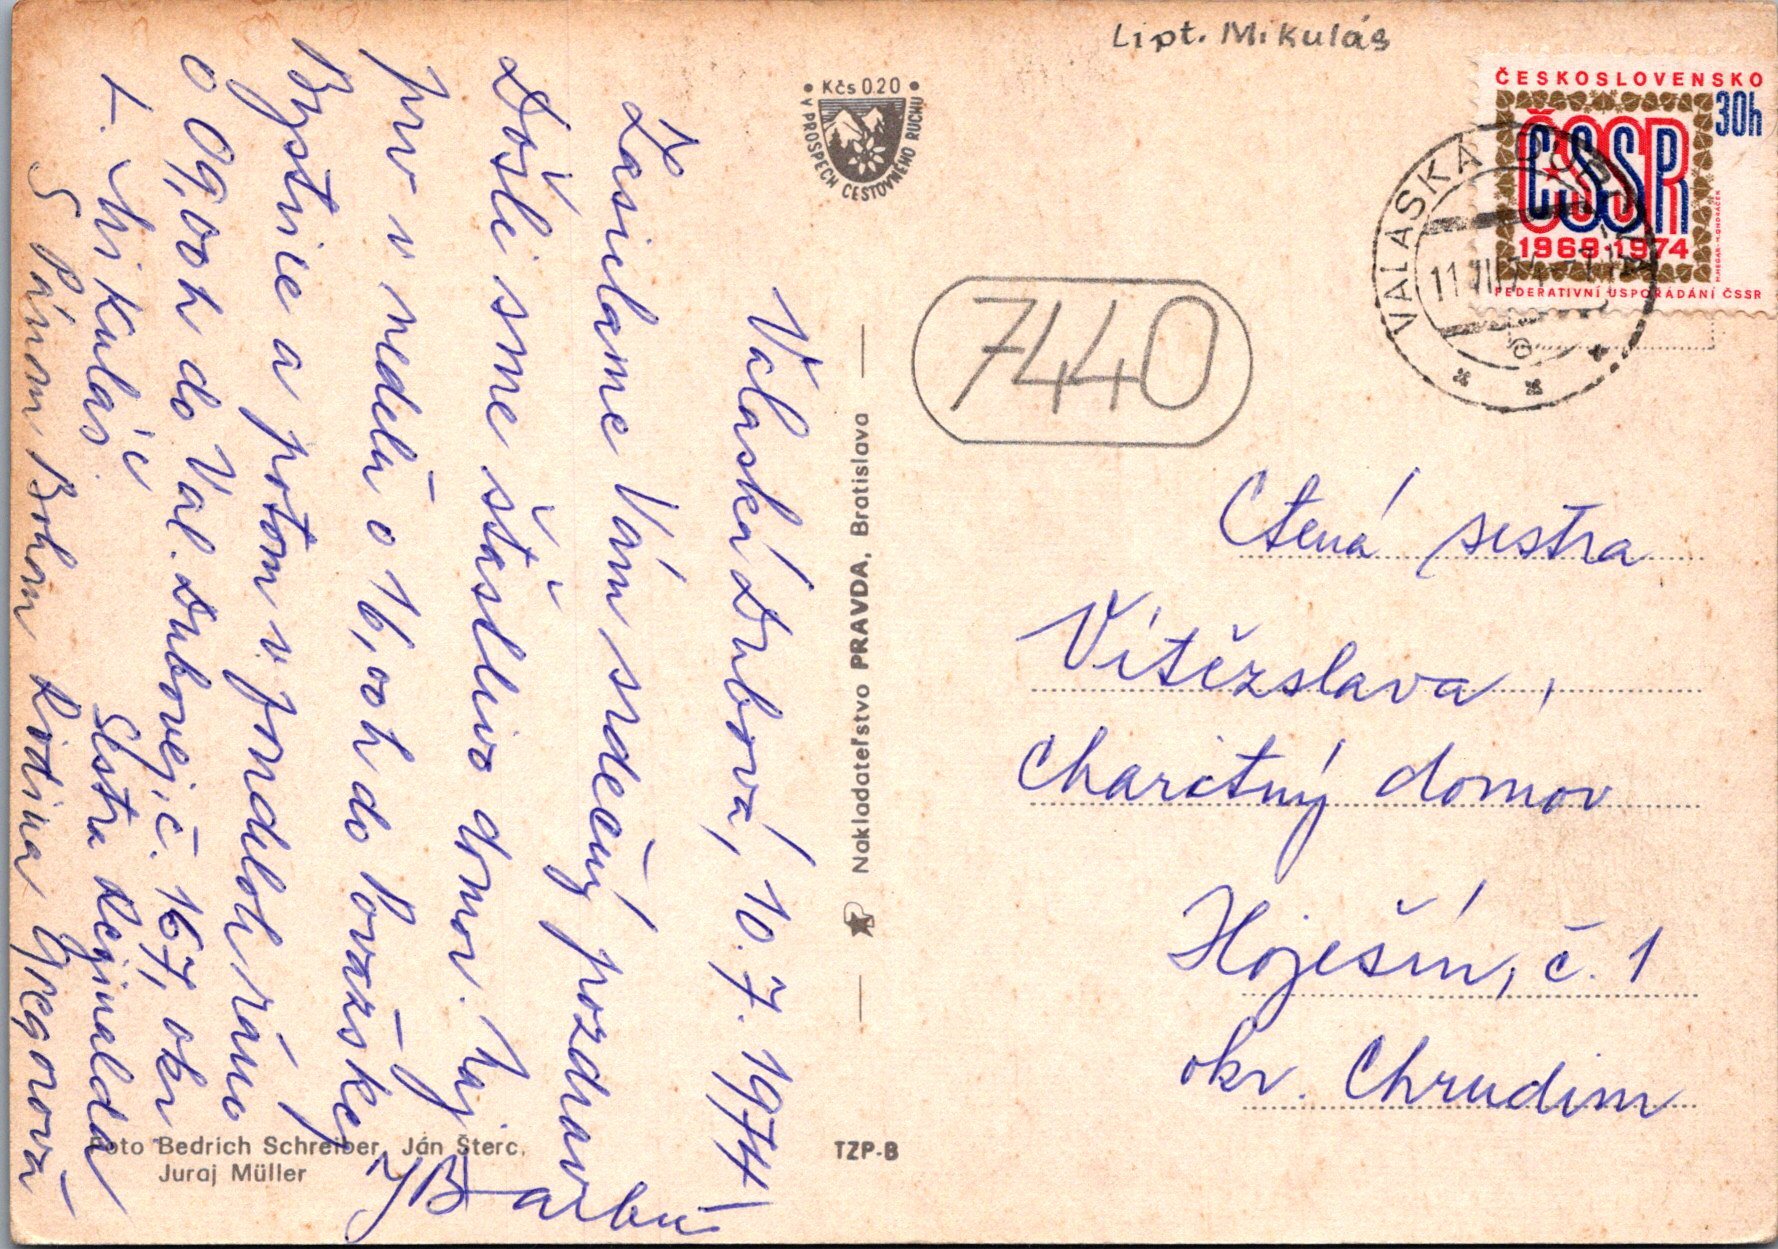 Lipt. Mikuláš
• Kčs 0.20 •
V PROSPECH CESTOVNÉHO RUCHU
ČESKOSLOVENSKO
30h
ČSSR
1969-1974
FEDERATIVNÍ USPOŘÁDÁNÍ ČSSR
VALASKÁ DUBOVÁ
7440
Valaská Dubová, 10. 7. 1974
Zasielame Vám srdečný pozdrav
Došli sme šťastlivo domov.
prv v nedelu o 16,00h do Považskej
Bystrice a potom v pondelok ráno
o 09,00h do Val. Dubovej, č. 167, okr
L. Mikuláš.
Sestra Reginalda
S Pánom Bohom Rodina Gregorová
Nakladateľstvo PRAVDA, Bratislava
Ctená sestra
Vítězslava,
Charitný domov
Hoješín, č. 1
okr. Chrudim
Foto Bedrich Schreiber, Ján Šterc,
Juraj Müller
TZP-B